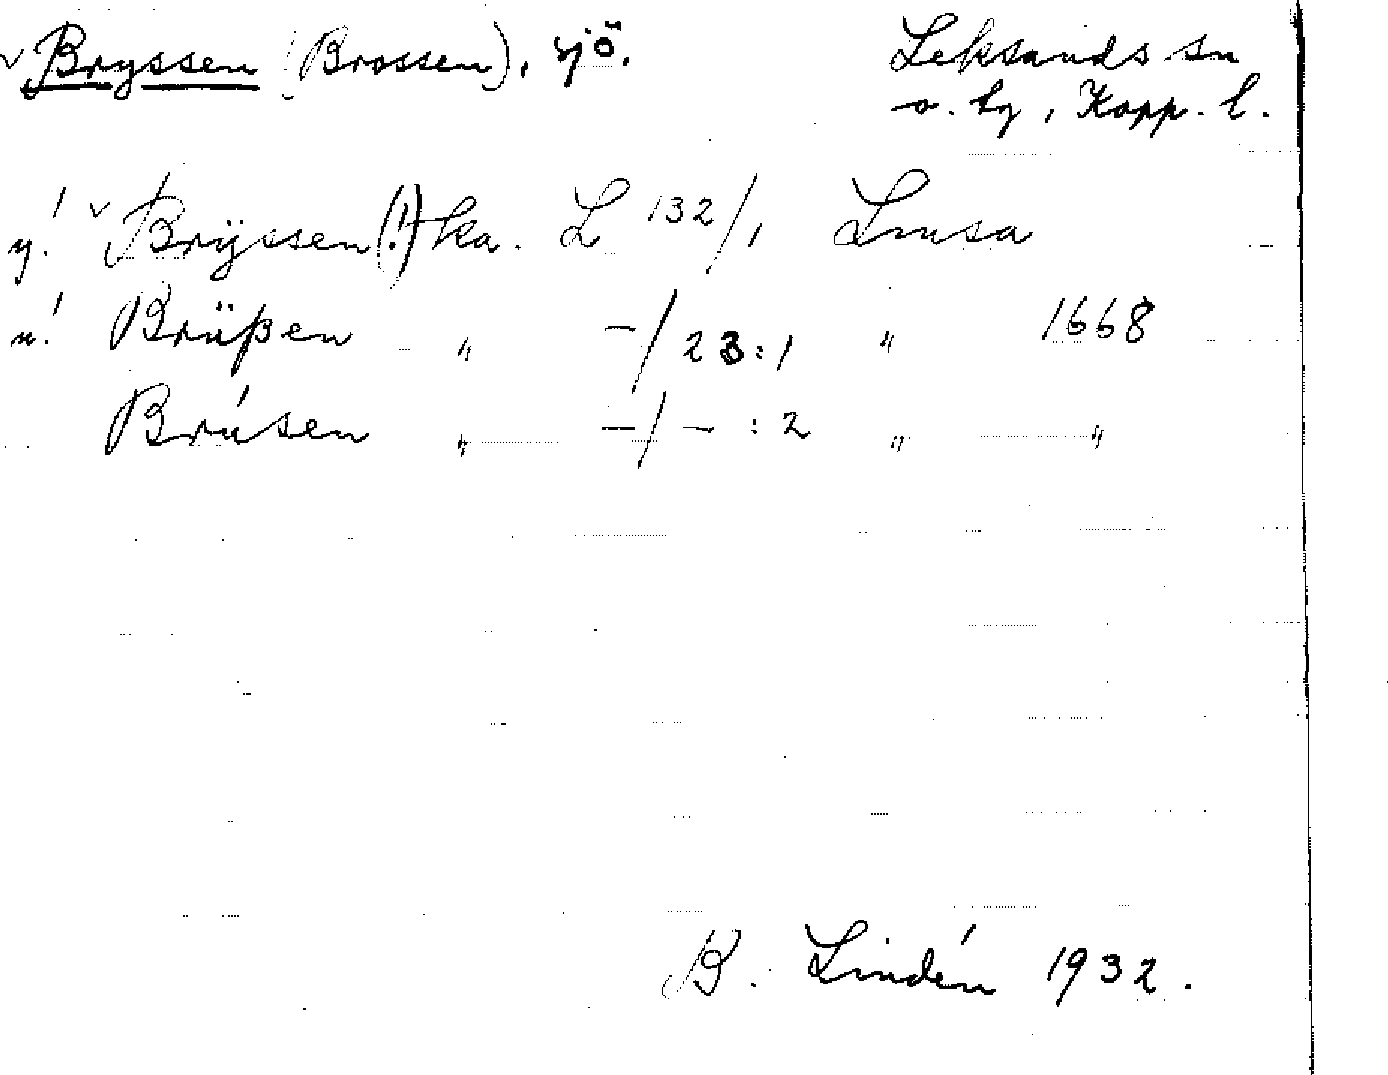 Bryssen (Brossen), sjö. Leksands sn
o. hg, Kopp. l.
y! Brÿssen(!) ka. L 132/1, Linsa
u! Brüßen " -/23:1 " 1668
Brúsen " -/-:2 " "
B. Lindén 1932.